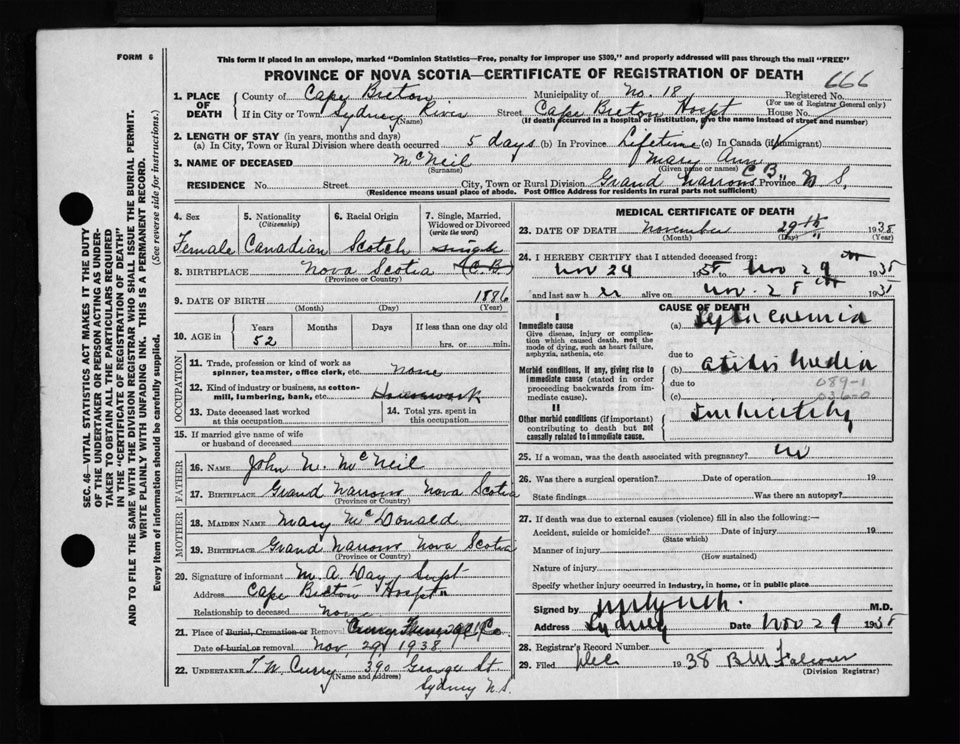 FORM 6
This form if placed in an envelope, marked "Dominion Statistics—Free, penalty for improper use $300," and properly addressed will pass through the mail "FREE"
PROVINCE OF NOVA SCOTIA—CERTIFICATE OF REGISTRATION OF DEATH
666
1. PLACE OF DEATH County of Cape Breton Municipality of No. 18 Registered No.
(For use of Registrar General only)
If in City or Town Sydney River Street Cape Breton Hospt House No.
(Name) (If death occurred in a hospital or institution, give the name instead of street and number)
2. LENGTH OF STAY (in years, months and days)
(a) In City, Town or Rural Division where death occurred 5 days (b) In Province Lifetime (c) In Canada (if immigrant)
3. NAME OF DECEASED McNeil Mary Ann
(Surname) (Given name or names)
C B
RESIDENCE No. Street City, Town or Rural Division Grand Narrows Province N S,
(Residence means usual place of abode. Post Office Address for residents in rural parts not sufficient)
4. Sex Female
5. Nationality (Citizenship) Canadian
6. Racial Origin Scotch
7. Single, Married, Widowed or Divorced (write the word) single
8. BIRTHPLACE Nova Scotia (C.B.)
(Province or Country)
9. DATE OF BIRTH 1886
(Month) (Day) (Year)
10. AGE in Years Months Days If less than one day old
52 hrs. or min.
OCCUPATION
11. Trade, profession or kind of work as spinner, teamster, office clerk, etc. none
12. Kind of industry or business, as cotton-mill, lumbering, bank, etc. Housework
13. Date deceased last worked at this occupation
14. Total yrs. spent in this occupation
15. If married give name of wife or husband of deceased
FATHER
16. NAME John N. McNeil
17. BIRTHPLACE Grand Narrows Nova Scotia
(Province or Country)
MOTHER
18. MAIDEN NAME Mary McDonald
19. BIRTHPLACE Grand Narrows Nova Scotia
(Province or Country)
20. Signature of informant M. A. Day, Supt
Address Cape Breton Hospt
Relationship to deceased None
21. Place of Burial, Cremation or Removal
Date of burial or removal Nov, 29, 1938
22. UNDERTAKER T. W. Curry 390 George St.
(Name and address)
Sydney N.S.
MEDICAL CERTIFICATE OF DEATH
23. DATE OF DEATH November 29th 1938
(Month) (Day) (Year)
24. I HEREBY CERTIFY that I attended deceased from:
Nov 24 to Nov 29 1938
and last saw her alive on Nov. 28 193
CAUSE OF DEATH
I
Immediate cause (a)
Give disease, injury or complication which caused death, not the mode of dying, such as heart failure, asphyxia, asthenia, etc
due to
(b) otitis media
Morbid conditions, if any, giving rise to immediate cause (stated in order proceeding backwards from immediate cause).
due to 089-1
(c) 036-0
II
Other morbid conditions (if important) contributing to death but not causally related to immediate cause.
25. If a woman, was the death associated with pregnancy? no
26. Was there a surgical operation? Date of operation 19
State findings Was there an autopsy?
27. If death was due to external causes (violence) fill in also the following:—
Accident, suicide or homicide? Date of injury 19
(State which)
Manner of injury
(How sustained)
Nature of injury
Specify whether injury occurred in industry, in home, or in public place
Signed by Lynch. M.D.
Address Sydney Date Nov 29 1938
28. Registrar's Record Number
29. Filed Dec 1938 B.W. Falconer
(Division Registrar)
SEC. 46—VITAL STATISTICS ACT MAKES IT THE DUTY
OF THE UNDERTAKER OR PERSON ACTING AS UNDER-
TAKER TO OBTAIN ALL THE PARTICULARS REQUIRED
IN THE "CERTIFICATE OF REGISTRATION OF DEATH"
AND TO FILE THE SAME WITH THE DIVISION REGISTRAR WHO SHALL ISSUE THE BURIAL PERMIT.
WRITE PLAINLY WITH UNFADING INK. THIS IS A PERMANENT RECORD.
Every item of information should be carefully supplied. (See reverse side for instructions.)